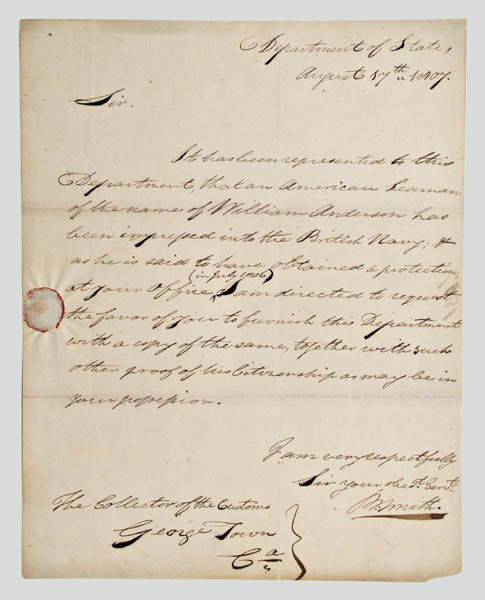 Department of State,
August 17th 1807.
Sir.
It has been represented to this
Department, that an American Seaman
of the name of William Anderson has
been impressed into the British Navy; &
as he is said to have obtained a protection
(in July 1806)
at your Office, I am directed to request
the favor of you to furnish this Department
with a copy of the same, together with such
other proof of his Citizenship as may be in
your possession.
I am very respectfully
Sir your Obed. Servt.
Smith.
The Collector of the Customs
George Town
Ca